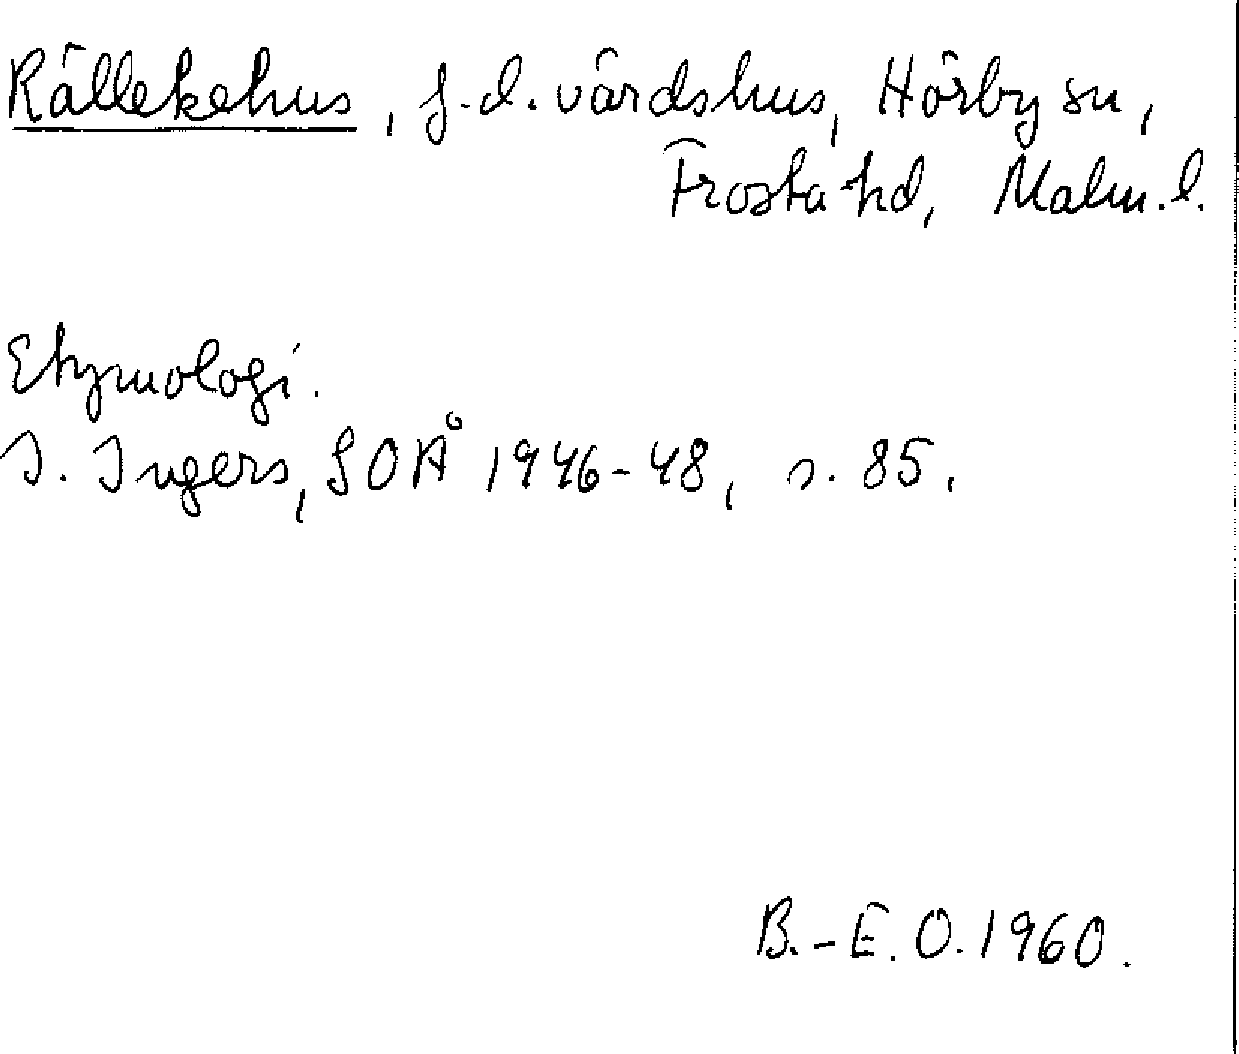 Rällekehus, f.d. värdshus, Hörby sn,
Frosta hd, Malm. l.
Etymologi.
I. Ingers, SOÅ 1946-48, s. 85.
B.-E. O. 1960.